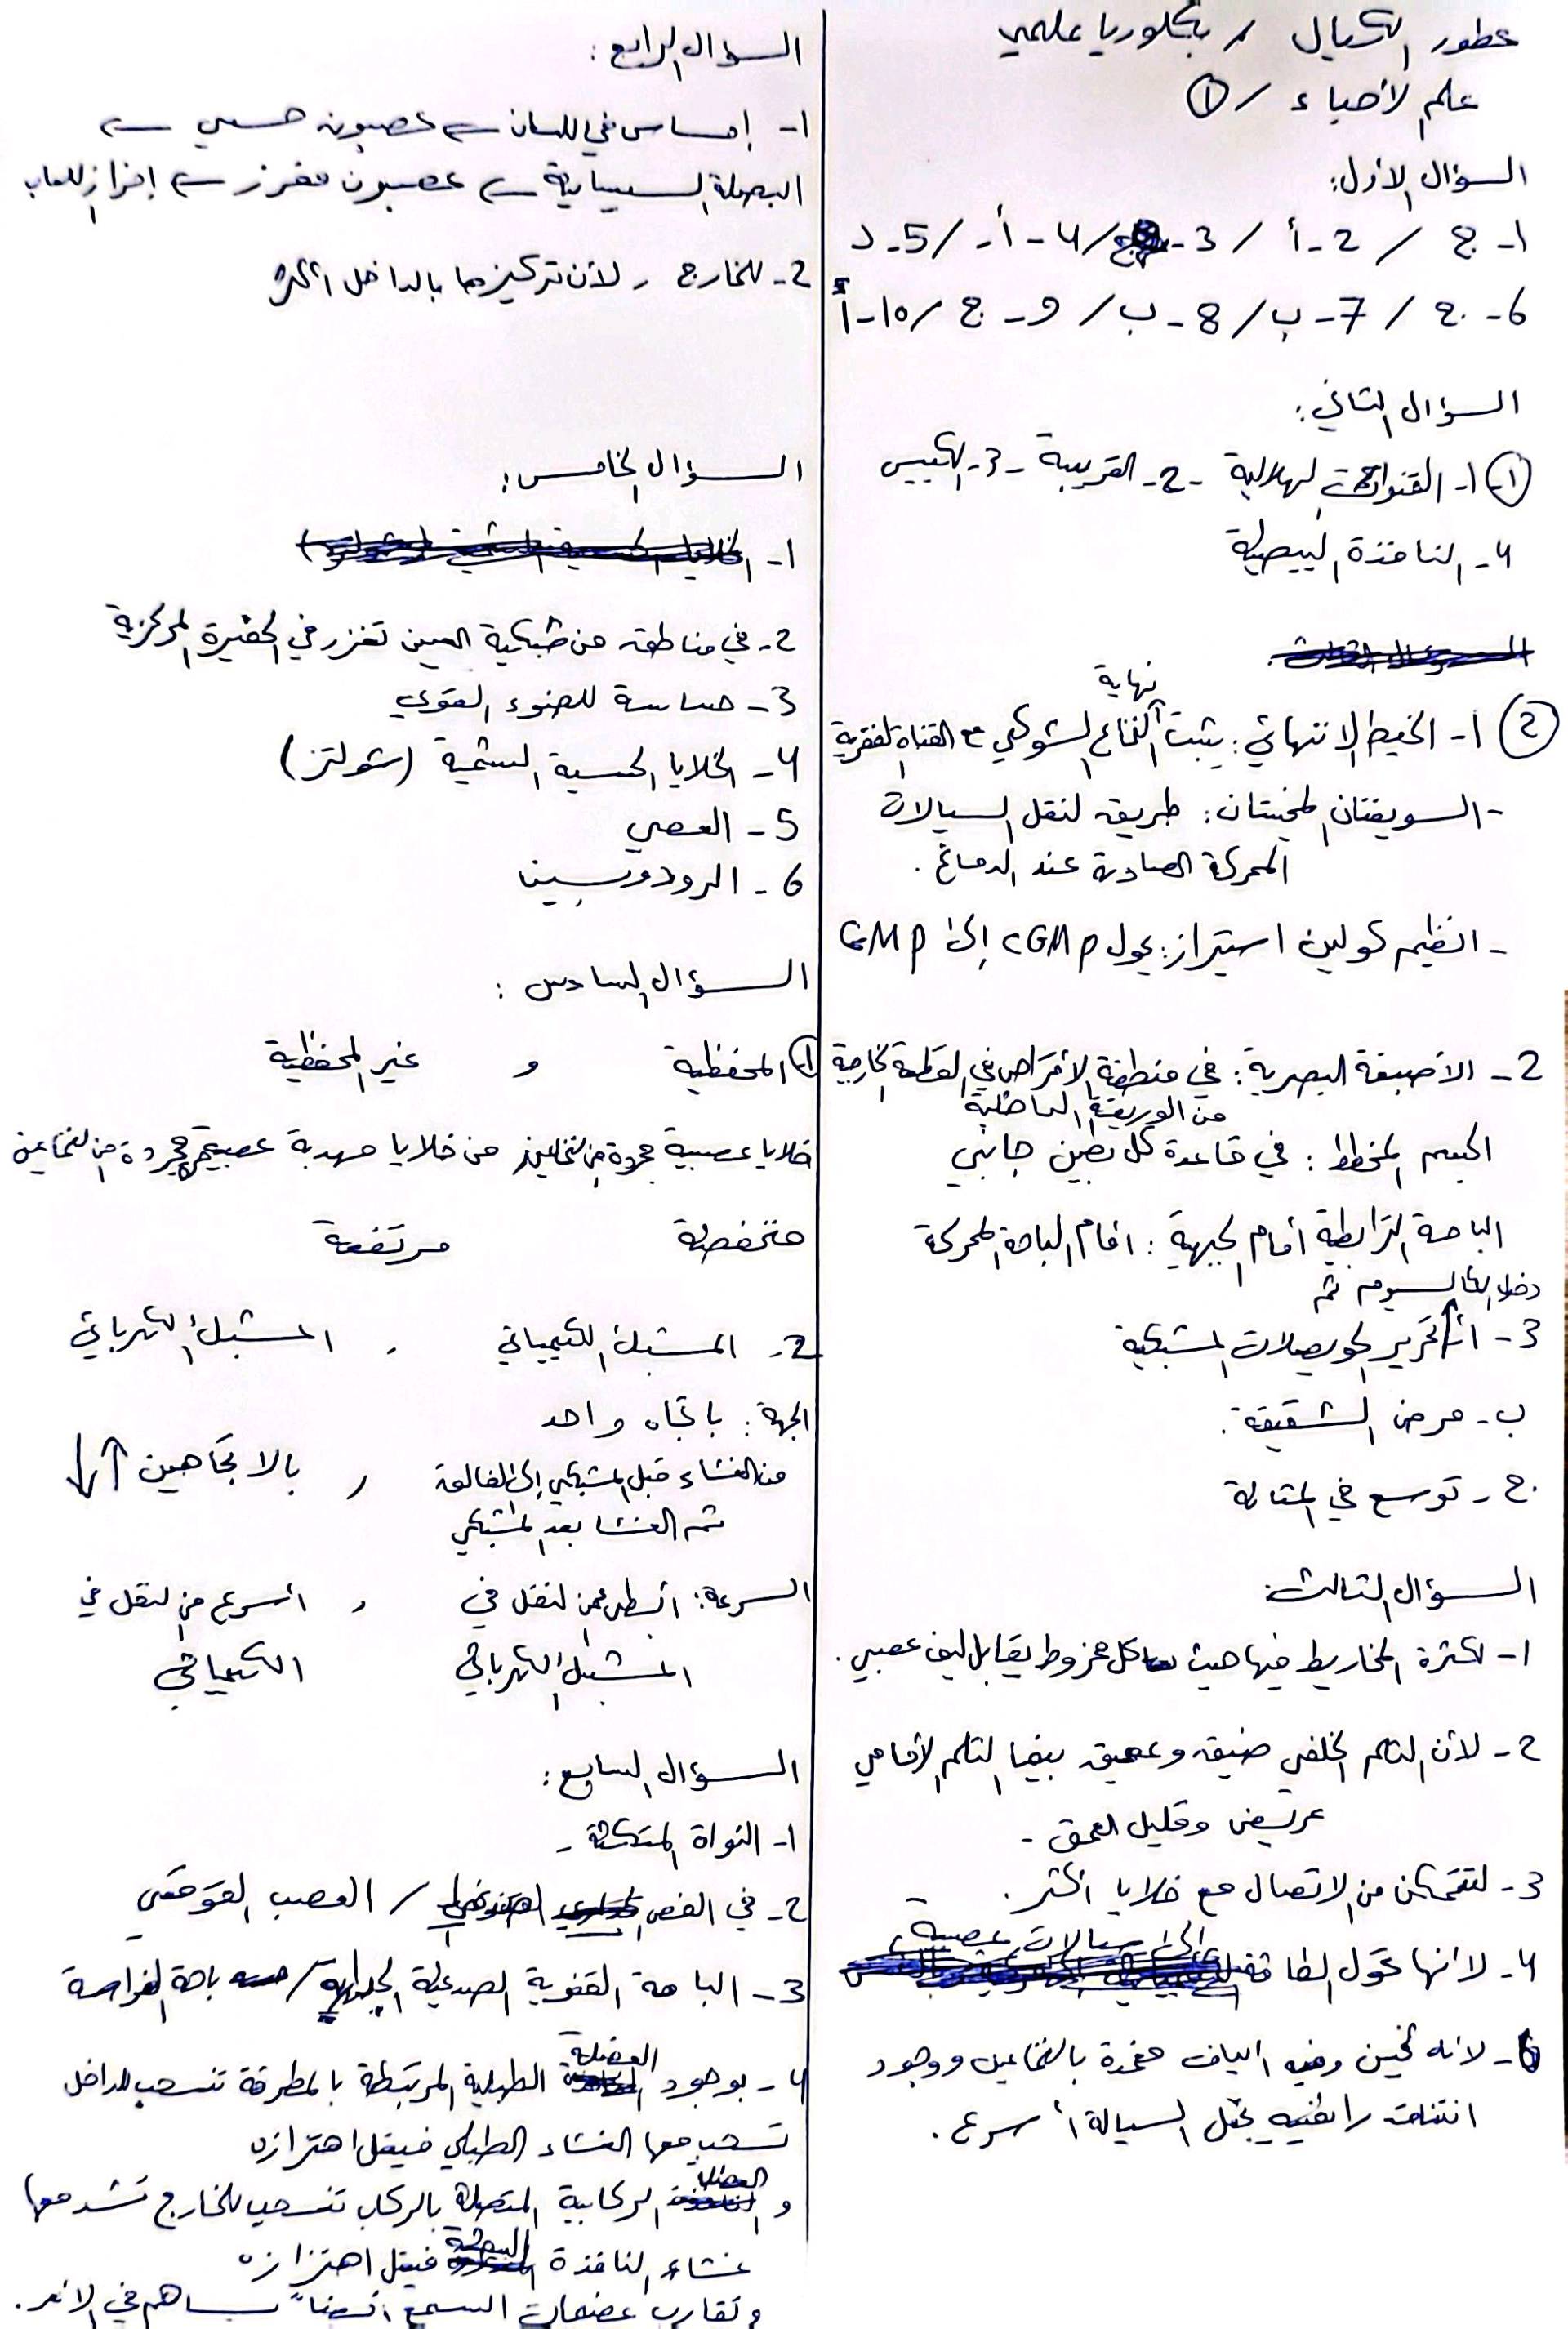 عطور الكيال / بكلوريا علمي
علم الأحياء / ①
السؤال الأول:
1- ج / 2- أ / 3- ج / 4- أ - / 5- د
6- ج / 7- ب / 8- ب / 9- ج / 10- أ
السؤال الثاني:
① 1- القنوات الهلالية - 2- القريبة - 3- الكييس
4- النافذة البيضية
② 1- الخيط الانتهائي: يثبت نهاية النخاع الشوكي مع القناة الفقرية
- السويقتان المخيتان: طريق لنقل السيالات
المحركة الصادرة عند الدماغ.
- انظيم كولين استيراز: يحول cGMP إلى GMP
2- الأصبغة البصرية: في منطقة الأقراص في القطعة الخارجية
من الوريقة الداخلية
الجسم المخطط: في قاعدة كل بطين جانبي
الباحة الترابطية أمام الجبهية: أمام الباحة المحركة
دخول الكالسيوم ثم
3- أ- تحرير الحويصلات المشبكية
ب- مرض الشقيقة.
ج- توسع في المثانة
السؤال الثالث:
1- لكثرة المخاريط فيها حيث كل مخروط يقابل ليف عصبي.
2- لأن الثلم الخلفي ضيق وعميق بينما الثلم الأمامي
عريض وقليل العمق -
3- لتتمكن من الاتصال مع خلايا أكثر.
4- لأنها تحول الطاقة إلى سيالات عصبية
5- لأنه ثخين وفيه ألياف مغمدة بالنخاعين ووجود
اختناقات رانفييه يجعل السيالة أسرع.
السؤال الرابع:
1- إحساس في اللسان ← عصبون حسي ←
البصلة السيسائية ← عصبون مفرز ← إفراز اللعاب
2- للخارج , لأن تركيزها بالداخل أكثر
السؤال الخامس:
1-
2- في مناطق من شبكية العين تغزر في الحفيرة المركزية
3- حساسة للضوء القوي
4- الخلايا الحسية الشمية (شولتز)
5- العصي
6- الرودوبسين
السؤال السادس:
① المحفظية و غير المحفظية
خلايا عصبية مجردة من النخاعين من خلايا مهدبة عصبية مجردة من النخاعين
منخفضة مرتفعة
2- المشبك الكيميائي , المشبك الكهربائي
الجهة: باتجاه واحد
من الغشاء قبل المشبكي إلى الفالق , بالاتجاهين ↑↓
ثم الغشا بعد المشبكي
السرعة: أبطأ من النقل في , أسرع من النقل في
المشبك الكهربائي الكيميائي
السؤال السابع:
1- النواة المتكثة -
2- في الفص / العصب القوقعي
3- الباحة القفوية الصدغية الجدارية / باحة الفراسة
4- بوجود العضلة الطبلية المرتبطة بالمطرقة تنسحب للداخل
تسحب معها الغشاء الطبلي فيقل اهتزازه
و العضلة الركابية المتصلة بالركاب تنسحب للخارج تشد معها
غشاء النافذة البيضية فيقل اهتزازه
وتقارب عضيمات السمع أيضاً يساهم في الأمر.